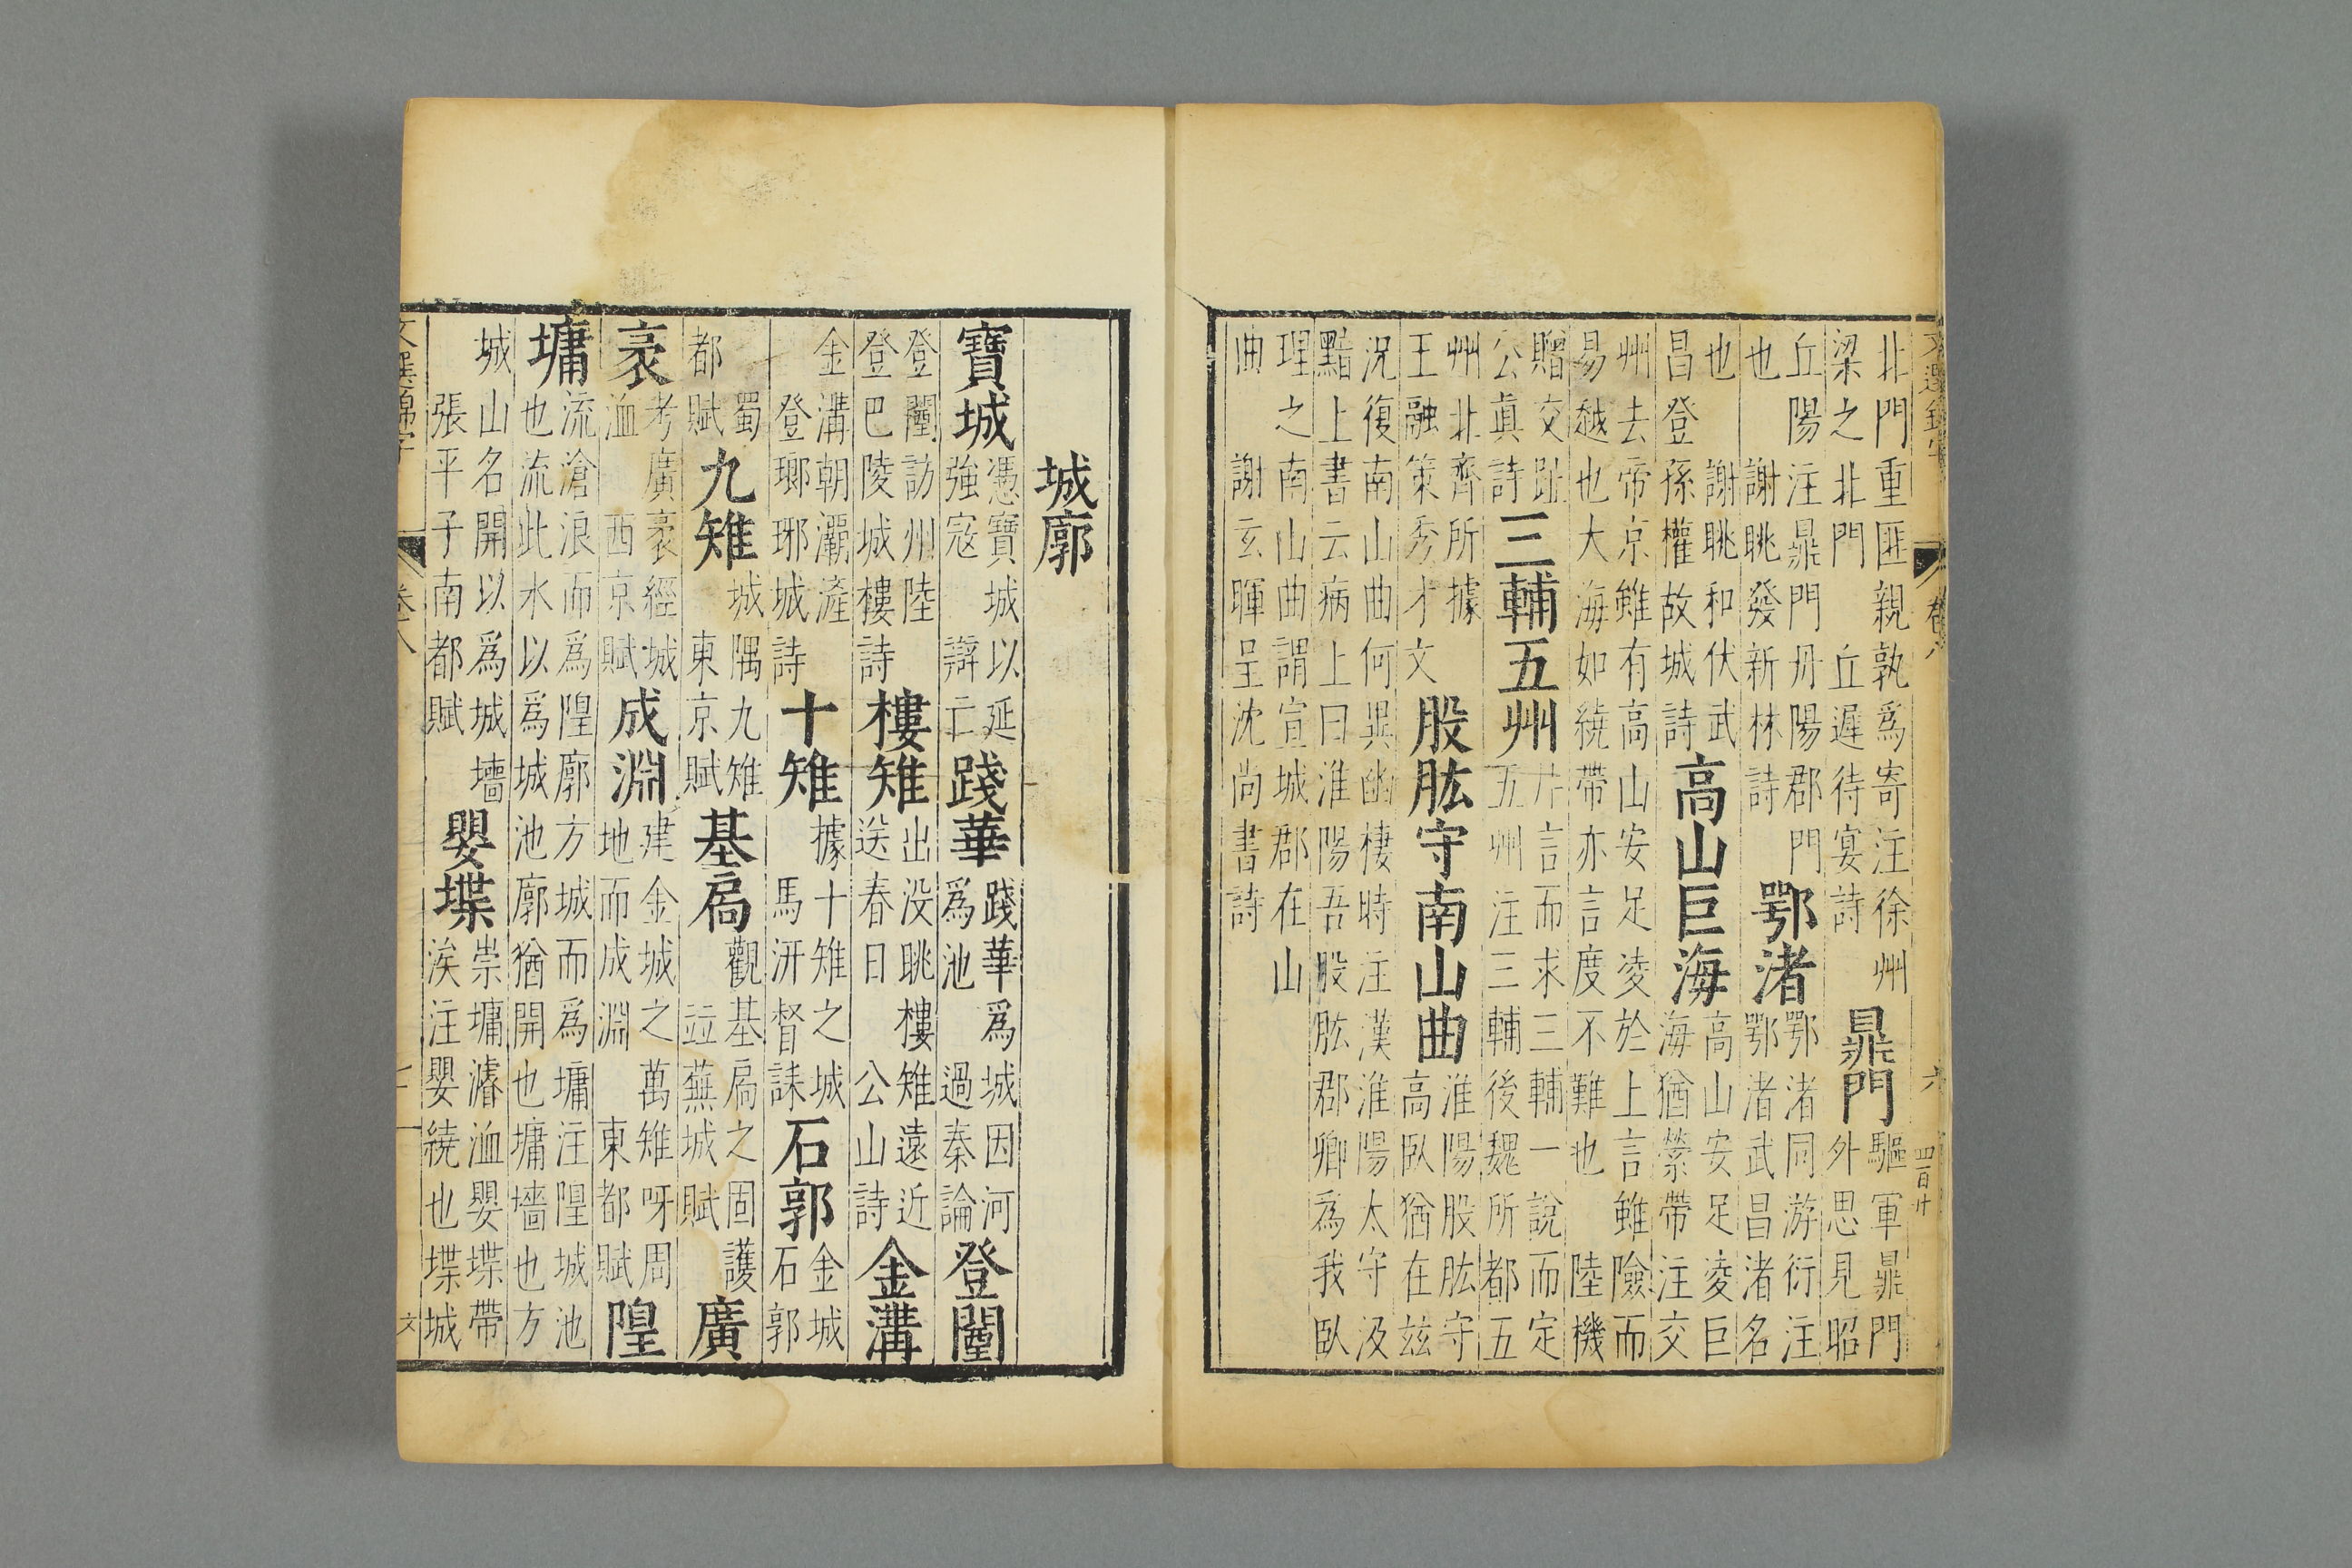 文選錦字 卷八 六 四百廿
北門重匪親孰爲寄注徐州
梁之北門 丘遲待宴詩
鼂門
驅軍鼂門
外思見昭
丘陽注鼂門丹陽郡門
也 謝眺發新林詩
鄂渚
鄂渚同游衍注
鄂渚武昌渚名
也 謝眺和伏武
昌登孫權故城詩
高山巨海
高山安足凌巨
海猶縈帶注交
州去帝京雖有高山安足凌於上言雖險而
易越也大海如繞帶亦言度不難也 陸機
贈交趾
公眞詩
三輔五州
片言而求三輔一說而定
五州注三輔後魏所都五
州北齊所據
王融策秀才文
股肱守南山曲
淮陽股肱守
高臥猶在茲
況復南山曲何異幽棲時注漢淮陽太守汲
黯上書云病上曰淮陽吾股肱郡卿爲我臥
理之南山曲謂宣城郡在山
曲 謝玄暉呈沈尚書詩
城廓
寶城
憑寶城以延
強寇 辯亡
踐華
踐華爲城因河
爲池 過秦論
登闉
登闉訪州陸
登巴陵城樓詩
樓雉
出没眺樓雉遠近
送春日 公山詩
金溝
金溝朝灞滻
登瑯琊城詩
十雉
據十雉之城
馬汧督誄
石郭
金城
石郭
蜀
都賦
九雉
城隅九雉
東京賦
基扃
觀基扃之固護
竝蕪城賦
廣
袤
考廣袤經城
洫 西京賦
成淵
建金城之萬雉呀周
地而成淵 東都賦
隍
墉
流滄浪而爲隍廓方城而爲墉注隍城池
也流此水以爲城池廓猶開也墉墻也方
城山名開以爲城墻
張平子南都賦
嬰堞
崇墉濬洫嬰堞帶
涘注嬰繞也堞城
文選錦字 卷八 七 文